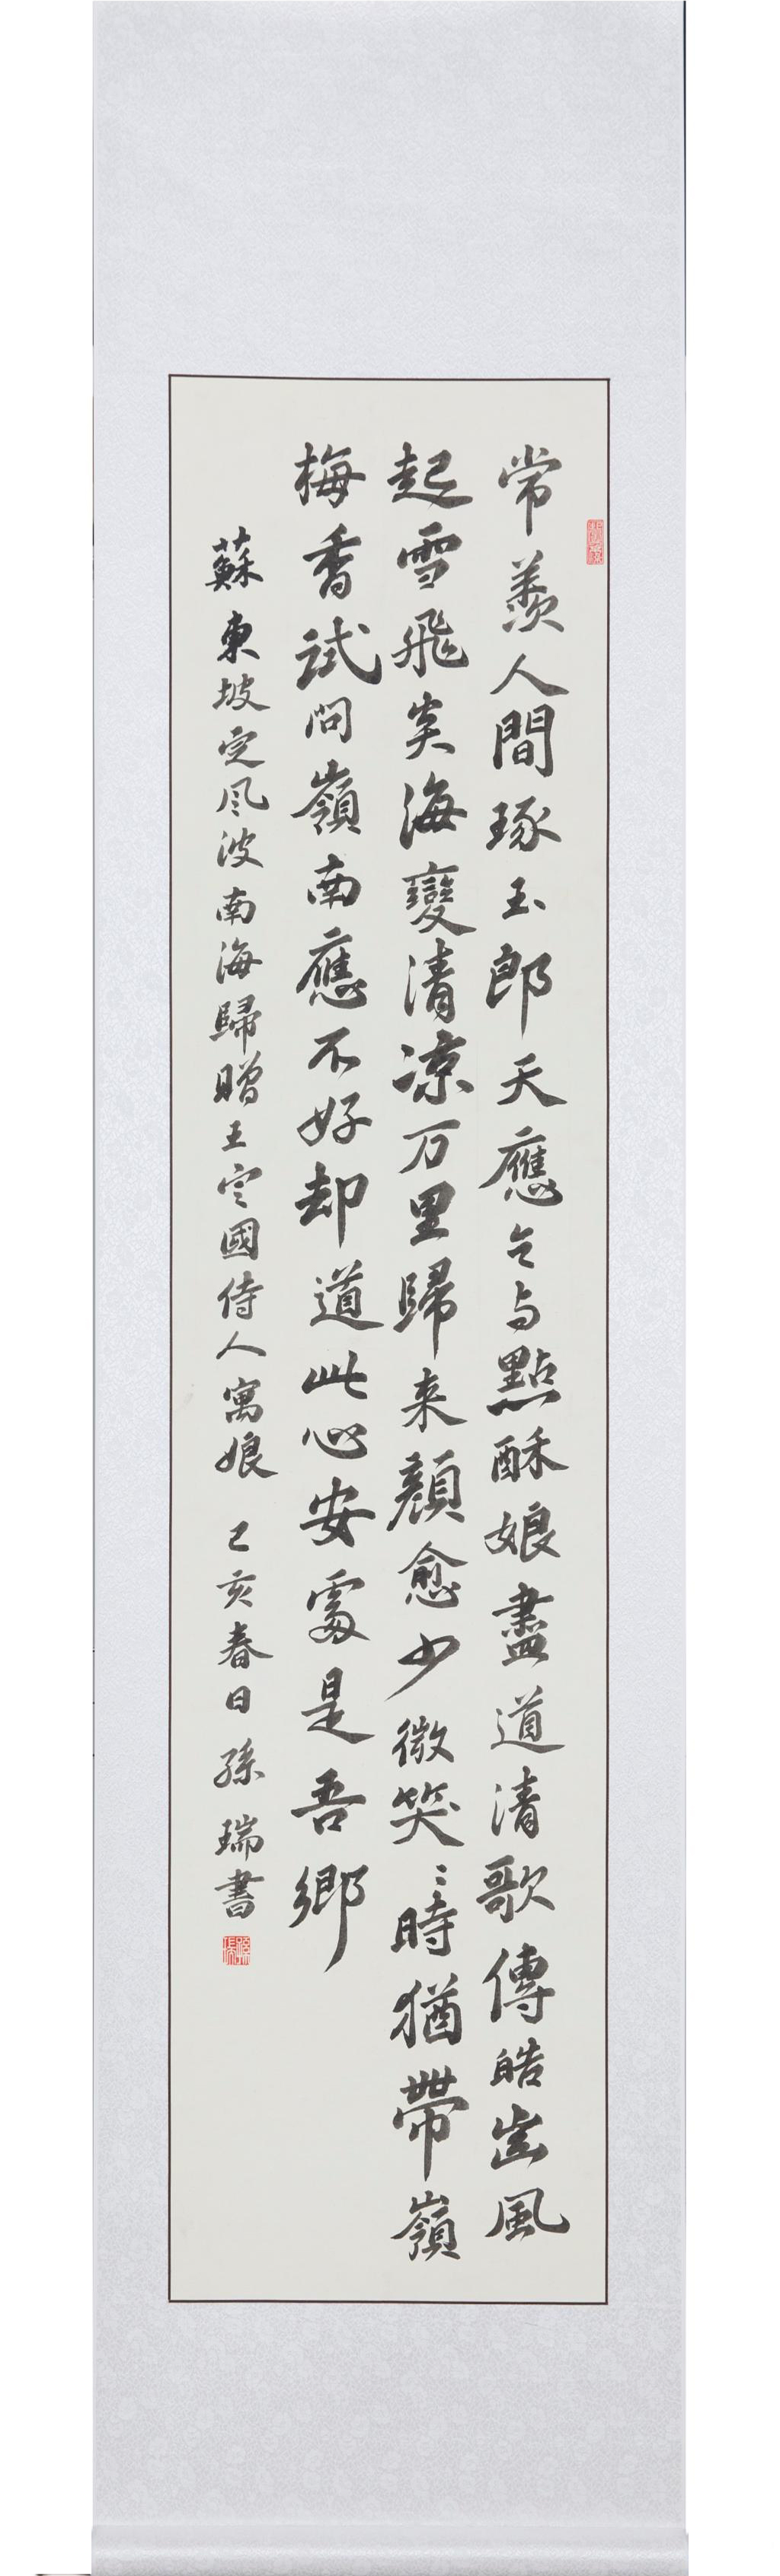 常羨人間琢玉郎天應乞与點酥娘盡道清歌傳皓齒風
起雪飛炎海變清凉万里歸来顏愈少微笑〻時猶帶嶺
梅香試問嶺南應不好却道此心安處是吾鄉
蘇東坡定风波南海歸贈王定國侍人寓娘 己亥春日 孫瑞書